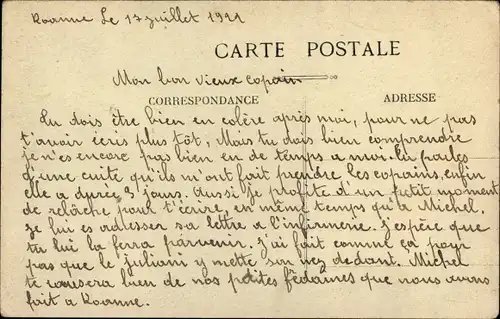 Roanne Le 17 juillet 1921
CARTE POSTALE
Mon bon vieux copain
CORRESPONDANCE
ADRESSE
Tu dois être bien en colère après moi, pour ne pas
t'avoir écris plus tôt, Mais tu dois bien comprendre
je n'es encore pas bien en de temps a moi. Tu parles
d'une cuite qu'ils m'ont fait prendre les copains, enfin
elle a durée 3 jours. Aussi je profite d'un petit moment
de relâche pour t'écrire, en même temps qu'a Michel.
Je lui es adresser sa lettre a l'infirmerie. J'espère que
tu lui la ferra parvenir. J'ai fait comme ça pour
pas que le juliani y mette son nez dedant. Michel
te causera bien de nos petites fédaines que nous avons
fait a Roanne.